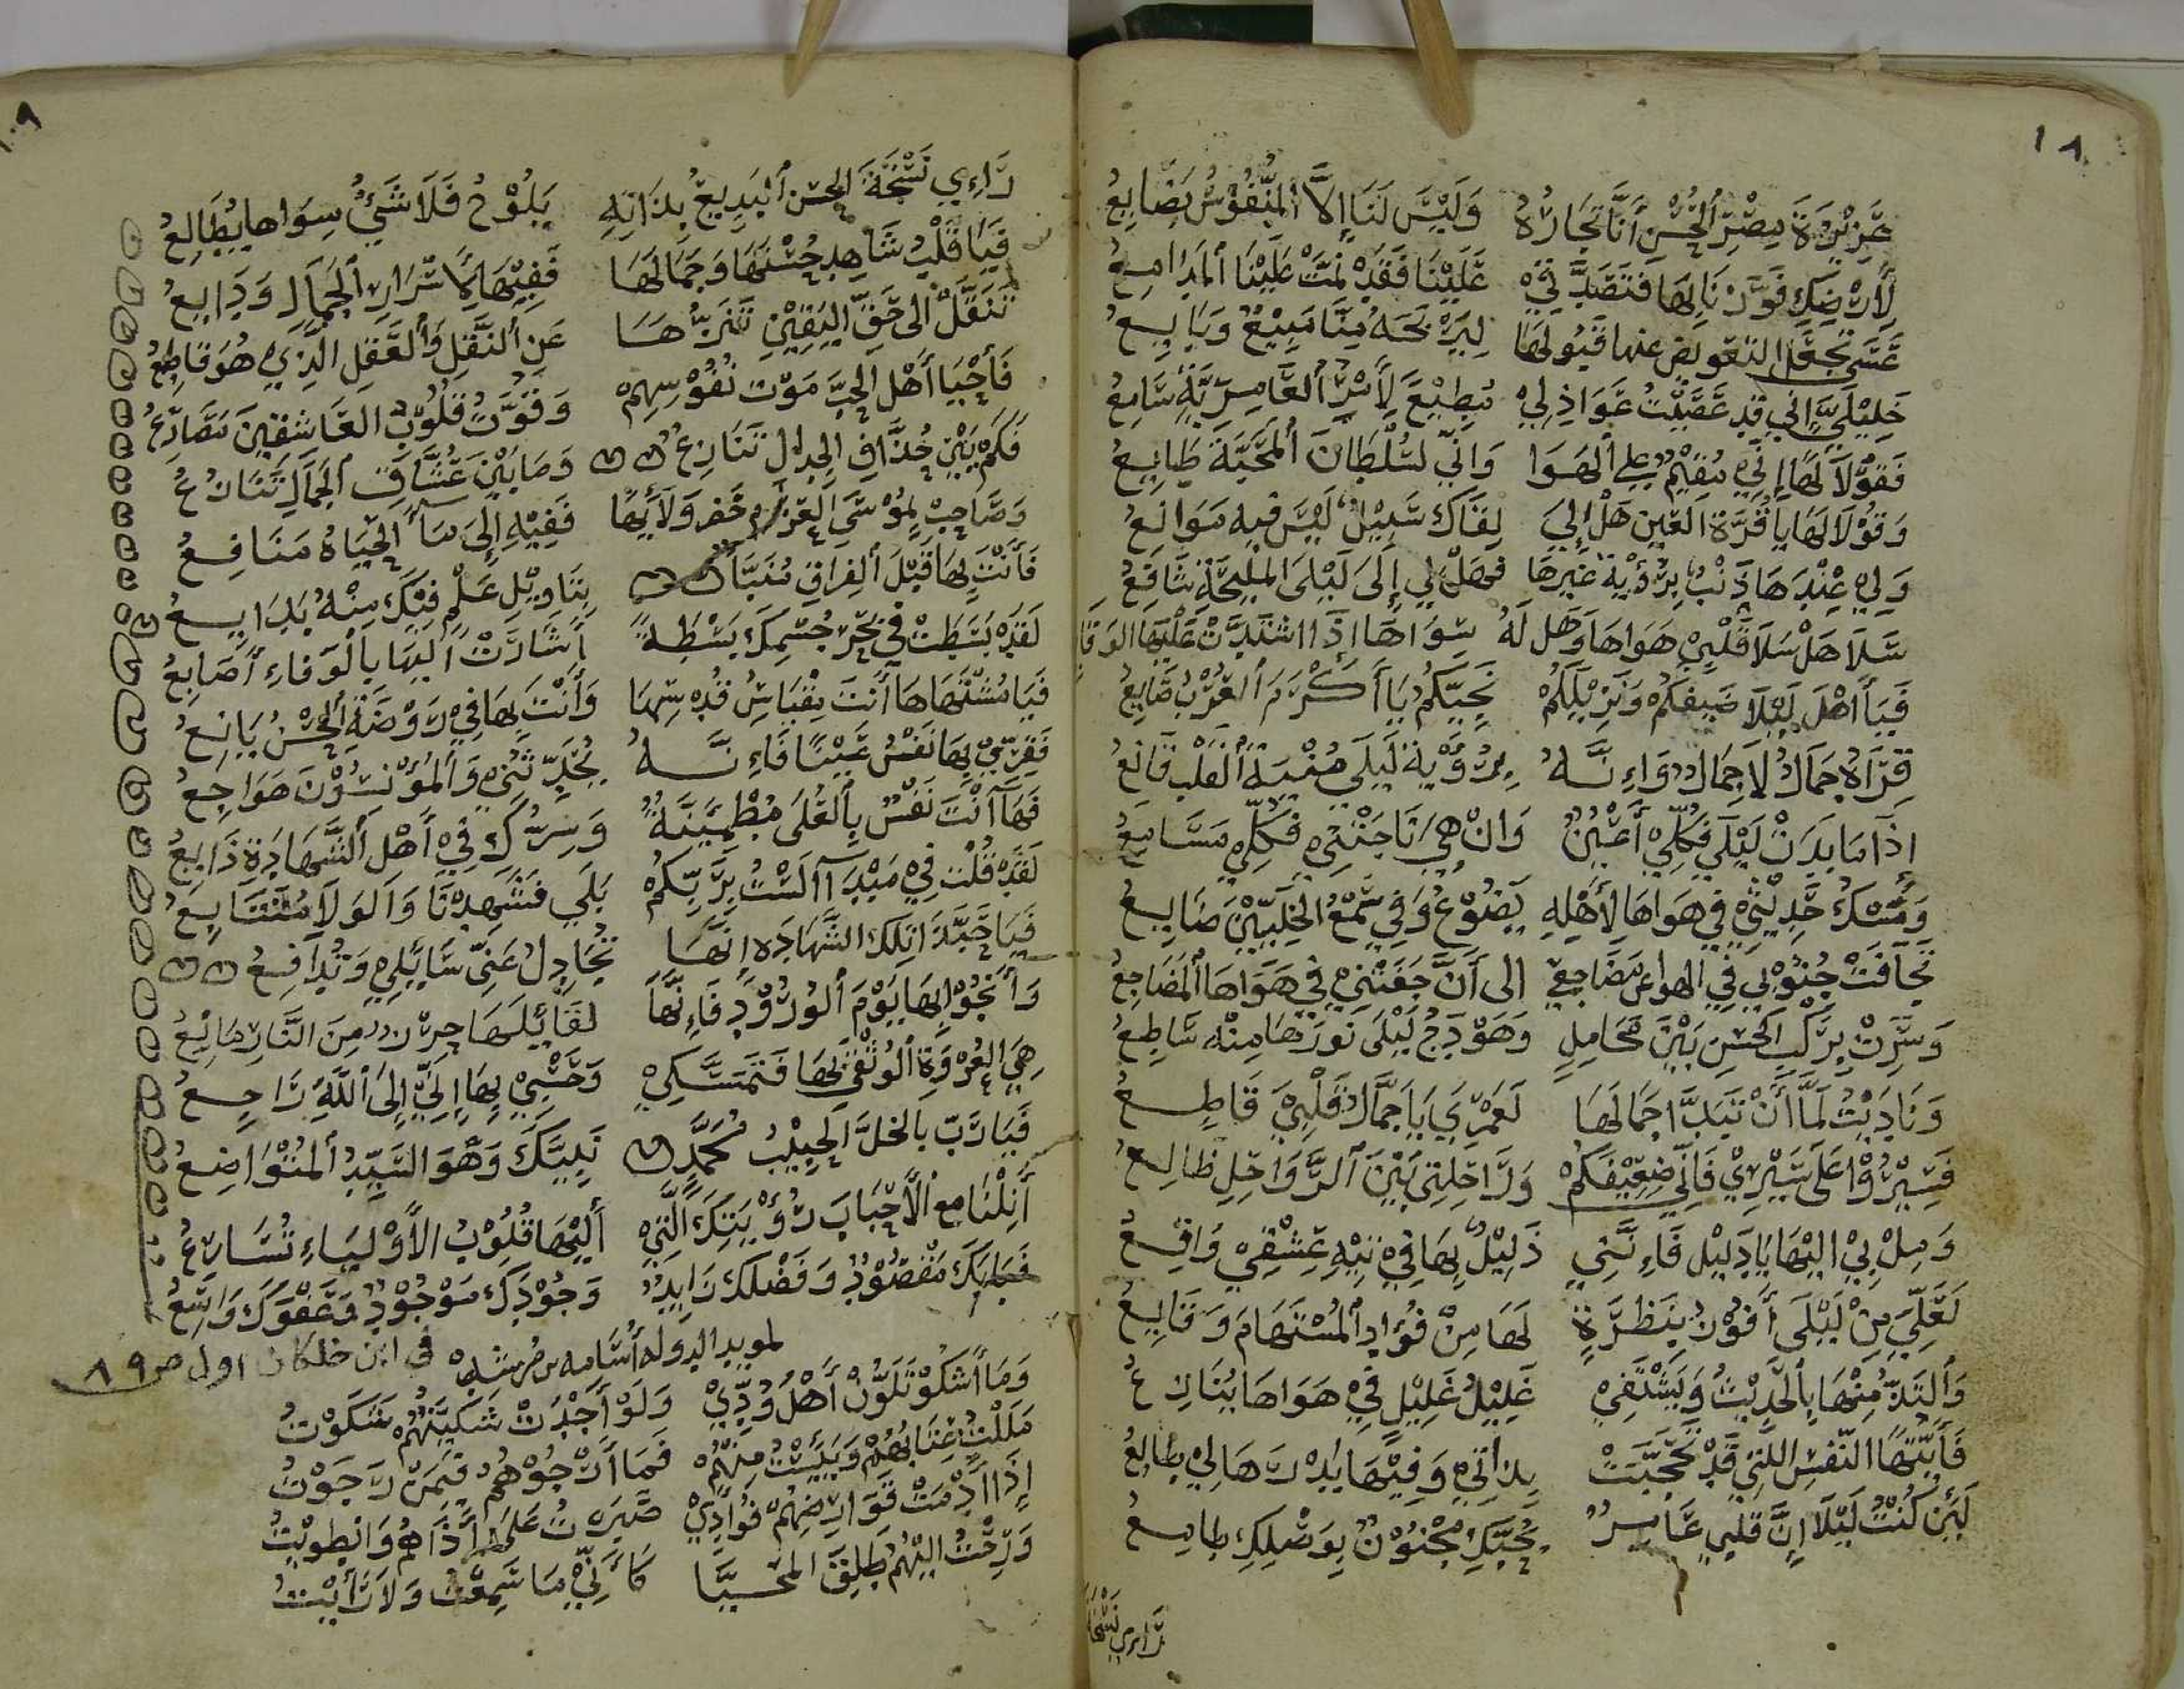 ١٨
عَزِيْزَةَ مِصْرِ ٱلحُسْنِ أَنَّا تِجَارُهُ وَلَيْسَ لَنَا إِلاَّ ٱلنُّفُوْسُ بَضَايِعُ
لِأَرْضِكِ فَوَّزْنَا بِهَا فَتَصَدَّقِيْ عَلَيْنَا فَقَدْ نَمَّتْ عَلَيْنَا ٱلمَدَامِعُ
عَسَى تَجْعَلِ التَّعْوِيضَ عنها قَبُولَهَا لِيَرْبَحَهُ مِنَّا مَبِيْعٌ وَبَايِعُ
خَلِيْلَيَّ إِنِّي قَد عَصَيْتُ عَوَاذِلِيْ مُطِيْعٌ لِأَمْرِ ٱلعَامِرِيَّةِ سَامِعُ
فَقُوْلاَ لَهَا إِنِّي مُقِيْمٌ عَلَى ٱلهَوَا وَإِنِّي لِسُلْطَانِ ٱلمَحَبَّةِ طَايِعُ
وَقُوْلاَ لَهَا يَا قُرَّةَ العَيْنِ هَلْ إِلَى لِقَاكِ سَبِيْلٌ لَيْسَ فِيهِ مَوَانِعُ
وَلِي عِنْدَهَا ذَنْبٌ بِرُؤْيَةِ غَيْرِهَا فَهَلْ لِي إِلَى لَيْلَى المَلِيْحَةِ شَافِعُ
سَلاَ هَلْ سَلاَ قَلْبِيْ هَوَاهَا وَهَل لَهُ سِوَاهَا إِذَا اشْتَدَّتْ عَلَيْهِ الوَقَايِعُ
فَيَا أَهْلَ لَيْلَا ضَيفُكُمْ وَنَزِيْلُكُمْ بِحَيِّكُمُ يَا أَكْرَمَ ٱلعُرْبِ ضَايِعُ
قِرَاهُ جَمَالٌ لاَ جِمَالٌ وَإِنَّهُ بِرُؤْيَةِ لَيْلَى مُنْيَةِ ٱلقَلْبِ قَانِعُ
إِذَا مَا بَدَتْ لَيْلَى فَكُلِّيْ أَعْيُنٌ وَانْ هِيَ نَاجَتْنِيْ فَكُلِّي مَسَامِعُ
وَمِسْكُ حَدِيْثِي فِي هَوَاهَا لِأَهْلِهِ يَضُوْعُ وَفِي سَمْعِ الخَلِيِّيْنَ ضَايِعُ
تَجَافَتْ جُنُوْبِي فِي الهوا عن مَضَاجِعِي الى أَنْ جَفَتْنِي فِي هَوَاهَا ٱلمَضَاجِعُ
وَسِرْتُ بِرَكْبِ الحُسْنِ بَيْنَ مَحَامِلٍ وَهَوْدَجُ لَيْلَى نُورُهَا مِنْهُ سَاطِعُ
وَنَادَيْتُ لَمَّا أَنْ تَبَدَّا جَمَالُهَا لَعَمْرِي يَا جَمَّالُ قَلْبِيَ قَاطِعُ
فَسِيْرُوْا عَلَى سَيْرِيْ فَإِنِّي ضَعِيْفُكُمْ وَرَاحِلَتِي بَيْنَ ٱلرَّوَاحِلِ ظَالِعُ
وَمِلْ بِيْ إِلَيْهَا يَا دَلِيْلُ فَإِنَّنِي ذَلِيْلٌ بِهَا فِيْ تِيْهِ عِشْقِيْ وَاقِعُ
لَعَلِّيَ مِنْ لَيْلَى أَفُوْزُ بِنَظْرَةٍ لَهَا مِنْ فُؤَادِ ٱلمُسْتَهَامِ وَقَايِعُ
وَأَلتَذُّ مِنْهَا بِٱلحَدِيْثِ وَيَشْتَفِيْ غَلِيْلُ عَلِيْلٍ فِيْ هَوَاهَا يُنَازِعُ
فَأَيَّتُهَا النَّفْسُ اللَّتِي قَدْ تَحَجَّبَتْ بِذَاتِي وَفِيْهَا بَدْرُهَا لِي طَالِعُ
لَئِنْ كُنْتِ لَيْلَا إِنَّ قَلْبِي عَامِرٌ بِحُبِّكِ مَجْنُوْنٌ بِوَصْلِكِ طَامِعُ
رَاءى نُسْخَةَ
٩
رَاءِي نُسْخَةَ الحُسْنِ ٱلبَدِيْعِ بِذَاتِهِ يَلُوْحُ فَلاَ شَيْءٌ سِوَاها يُطَالِعُ
فَيَا قَلْبُ شَاهِدْ حُسْنَهَا وَجَمَالَهَا فَفِيْهَا لِأَسْرَارِ ٱلجَمَالِ وَدَايِعُ
تَنَقَّلْ إلى حَقِّ اليَقِيْنِ تَنَزُّهًا عَنِ ٱلنَّقْلِ وَٱلعَقْلِ الَّذِي هُوَ قَاطِعُ
فَإِحْيَا أَهْلِ الحُبِّ مَوْتُ نُفُوْسِهِمْ وَقُوْتُ قُلُوْبِ العَاشِقِيْنَ مَصَارِعُ
فَكَمْ بَيْنَ حُذَّاقِ الجِدَالِ تَنَازُعٌ وَمَا بَيْنَ عُشَّاقِ ٱلجَمَالِ تَنَازُعُ
وَصَاحِبْ لِمُوْسَى العَزْمِ خَضْرَ وَلاَئِهَا فَفِيْهِ إِلَى مَاءِ الحَيَاةِ مَنَافِعُ
فَأَنْتَ بِهَا قَبْلَ ٱلفِرَاقِ مُنَبَّأٌ بِتَاوِيْلِ عِلْمٍ فِيْكَ مِنْهُ بَدَايِعُ
لَقَدْ بَسَطَتْ فِيْ بَحْرِ جِسْمِكَ بَسْطَةً أَشَارَتْ إِلَيْهَا بِالْوَفَاءِ أَصَابِعُ
فَيَا مُشْتَهَاهَا أَنْتَ مِقْيَاسُ قُدْسِهَا وَأَنْتَ بِهَا فِيْ رَوْضَةِ ٱلحُسْنِ يَانِعُ
فَقَرِّيْ بِهَا نَفْسُ عَيْنًا فَإِنَّهُ يُحَدِّثُنِي وَٱلمُؤْنِسُوْنَ هَوَاجِعُ
فَهَا أَنْتَ نَفْسٌ بِٱلعُلَى مُطْمَئِنَّةٌ وَسِرُّكَ فِيْ أَهْلِ ٱلشَّهَادَةِ ذَايِعُ
لَقَدْ قُلْتَ فِيْ مَبْدَا أَلَسْتُ بِرَبِّكُمْ بَلَى فَشَهِدْنَا وَالوَلاَ مُتَتَابِعُ
فَيَا حَبَّذَا تِلْكَ الشَّهَادَةُ إِنَّهَا تُجَادِلُ عَنِّي سَايِلِي وَتُدَافِعُ
وَأَنْجُوْ بِهَا يَوْمَ ٱلوُرُوْدِ فَإِنَّهَا لِقَائِلِهَا حِرْزٌ مِنَ النَّارِ مَانِعُ
هِيَ العُرْوَةُ ٱلوُثْقَى بِهَا فَتَمَسَّكِيْ وَحَسْبِيْ بِهَا إِنِّي إِلَى ٱللَّهِ رَاجِعُ
فَيَا رَبِّ بِالخِلِّ ٱلحَبِيْبِ مُحَمَّدٍ نَبِيِّكَ وَهْوَ السَّيِّدُ ٱلمُتَوَاضِعُ
أَنِلْنَا مع الأَحْبَابِ رُؤْيَتَكَ الَّتِي إِلَيْهَا قُلُوْبُ الأَوْلِيَاءِ تُسَارِعُ
فَبَابُكَ مَقْصُوْدٌ وَفَضْلُكَ زَايِدٌ وَجُوْدُكَ مَوْجُوْدٌ وَعَفْوُكَ وَاسِعُ
لمويد الدوله أُسَامه بن مُرشِدْ في ابن خلكان اول ص ٨٩
وَمَا أَشْكُوْ تَلَوُّنَ أَهْلِ وُدِّيْ وَلَوْ أَجْدَتْ شَكِيَّتُهُمْ شَكَوْتُ
مَلَلْتُ عِتَابَهُمْ وَيَئِسْتُ مِنْهُمْ فَمَا أَرْجُوْهُمْ فِيْمَنْ رَجَوْتُ
إِذَا أَدْمَتْ قَوَارِضُهُمْ فُؤَادِيْ صَبَرْتُ عَلَى أَذَاهُمْ وَانْطَوَيْتُ
وَرُحْتُ إِلَيْهِمُ طَلِقَ المُحَيَّا كَأَنِّي مَا سَمِعْتُ وَلاَ رَأَيْتُ